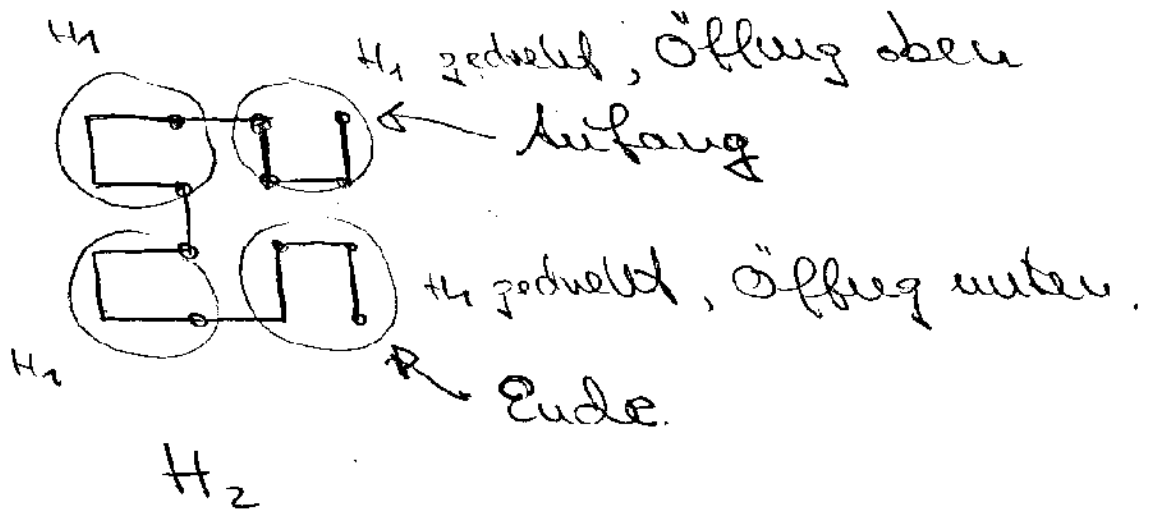 H1
H1 gedreht, Öffnung oben
Anfang
H1 gedreht, Öffnung unten.
H1
Ende.
H2